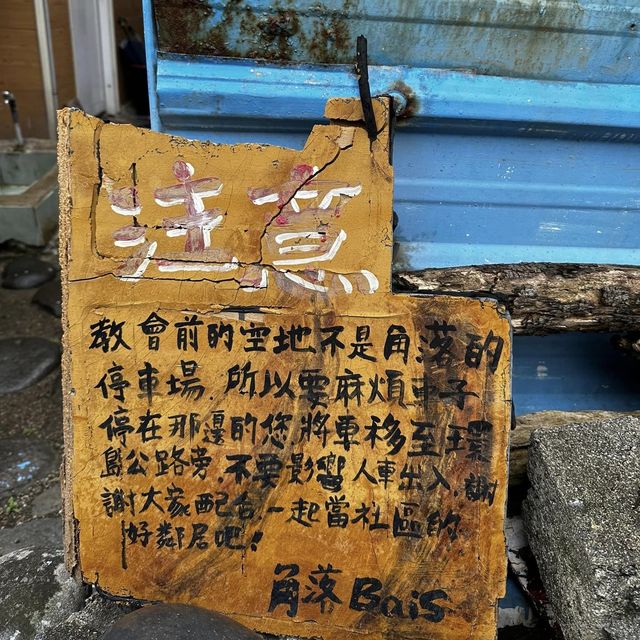 注意
教會前的空地不是角落的
停車場.所以要麻煩車子
停在那邊的您將車移至環
島公路旁.不要影響人車出入.謝
謝大家配合一起當社區的
好鄰居吧!
角落Bais